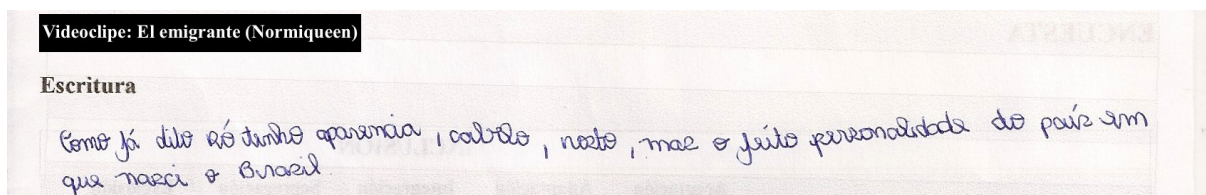 Videoclipe: El emigrante (Normiqueen)
Escritura
Como já dito só tenho aparencia, cabelo, rosto, mas o jeito personalidade do país em
que nasci o Brasil.